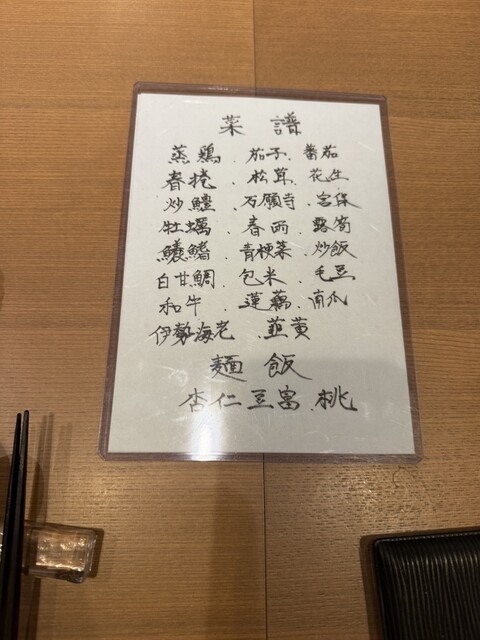 菜譜
蒸鶏.茄子.蕃茄
春捲.松茸.花生
炒鱧.万願寺.宮保
牡蠣.春雨.露筍
鱶鰭.青梗菜.炒飯
白甘鯛.包米.毛豆
和牛.蓮藕.南瓜
伊勢海老.韮黄
麺飯
杏仁豆富.桃